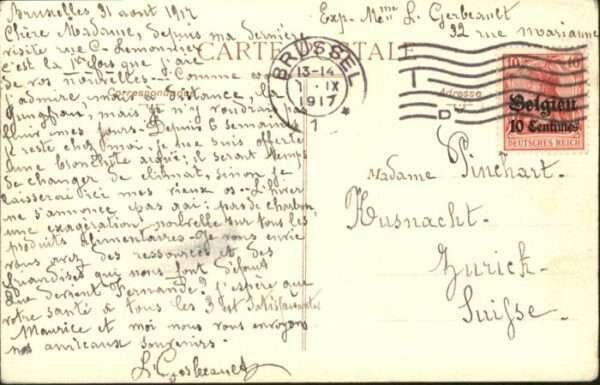 Bruxelles 31 août 1917
Chère Madame, depuis ma dernière
visite rue C. Lemonnier
c'est la 1re fois que j'ai
de vos nouvelles. Comme vous
j'admire, mais à distance, la
Jungfrau, mais je n'y voudrais pas
finir mes jours. Depuis 6 semaines
je reste chez moi, je me suis offerte
une bronchite aiguë; il serait temps
de changer de climat, sinon je
laisserai ici mes vieux os. L'hiver
ne s'annonce pas gai: pas de charbon,
une exagération nouvelle sur tous les
produits alimentaires. Je vous envie
vous avez des ressources et des
friandises qui nous font défaut
Que devient Fernande? j'espère que
votre santé à tous les 3 est satisfaisante
Maurice et moi nous vous envoyons
nos amicaux souvenirs.
L. Gerbeault
Exp. Mme L. Gerbeault
32 rue Marianne
CARTE POSTALE
Correspondance
Adresse
BRÜSSEL
13-14
1. IX
1917
* 1 *
T
D
10 10
Belgien
10 Centimes
DEUTSCHES REICH
Madame Pinchart.
Kusnacht.
Zurich.
Suisse.